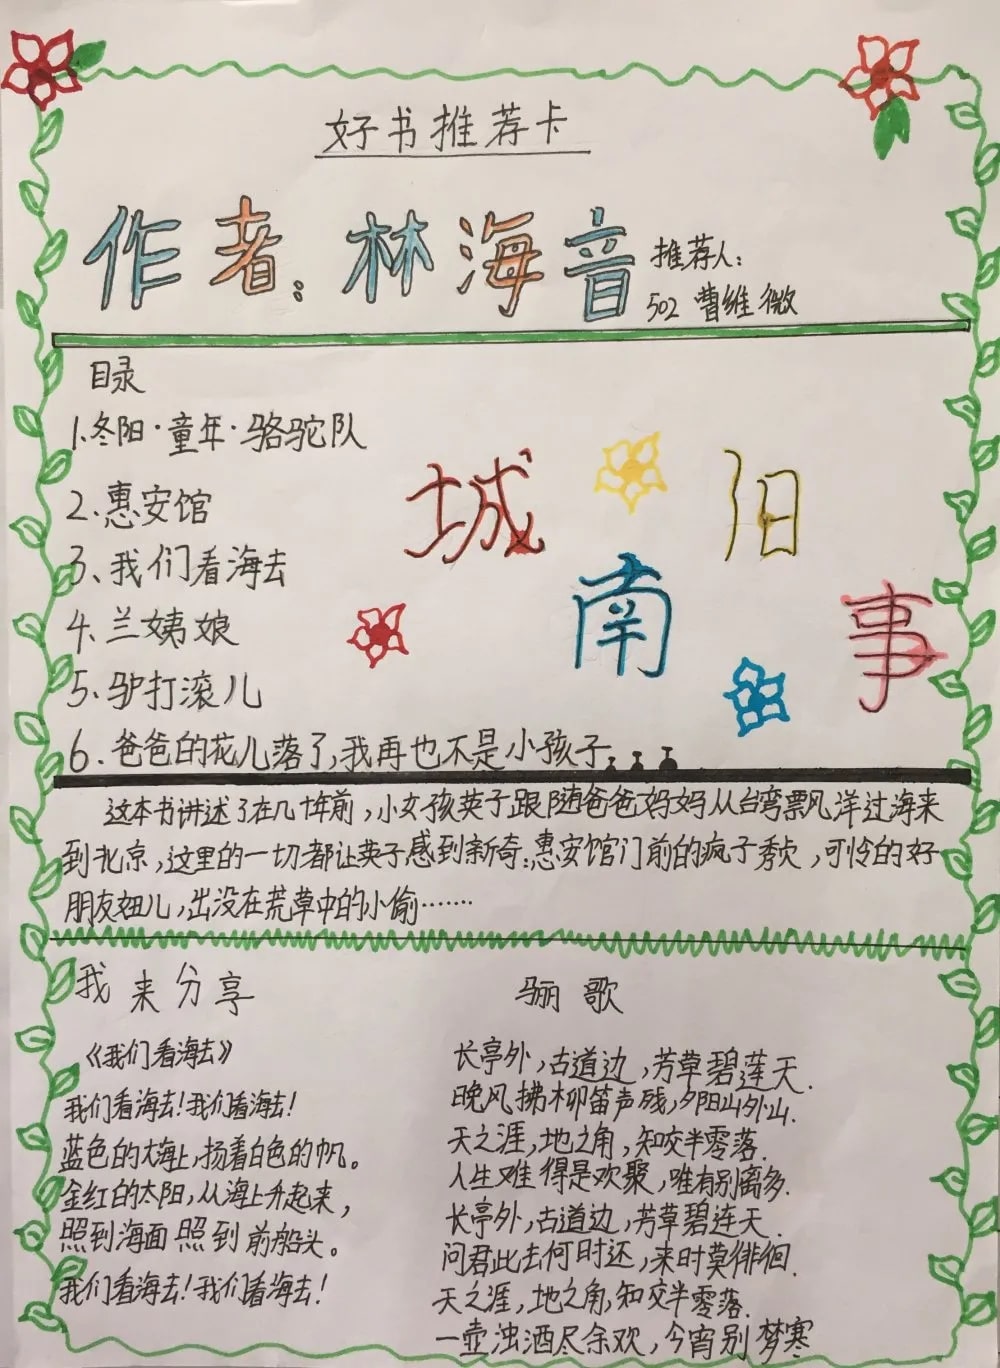 好书推荐卡
作者：林海音
推荐人：
502 曹维微
目录
1.冬阳·童年·骆驼队
2.惠安馆
3、我们看海去
4.兰姨娘
5.驴打滚儿
6.爸爸的花儿落了,我再也不是小孩子
城南旧事
这本书讲述了在几十年前，小女孩英子跟随爸爸妈妈从台湾飘洋过海来
到北京，这里的一切都让英子感到新奇：惠安馆门前的疯子秀贞，可怜的好
朋友妞儿，出没在荒草中的小偷……
我来分享
《我们看海去》
我们看海去！我们看海去！
蓝色的大海上，扬着白色的帆。
金红的太阳，从海上升起来，
照到海面照到前船头。
我们看海去！我们看海去！
骊歌
长亭外，古道边，芳草碧莲天.
晚风拂柳笛声残，夕阳山外山.
天之涯，地之角，知交半零落.
人生难得是欢聚，唯有别离多.
长亭外，古道边，芳草碧连天.
问君此去何时还，来时莫徘徊.
天之涯，地之角，知交半零落.
一壶浊酒尽余欢，今宵别梦寒